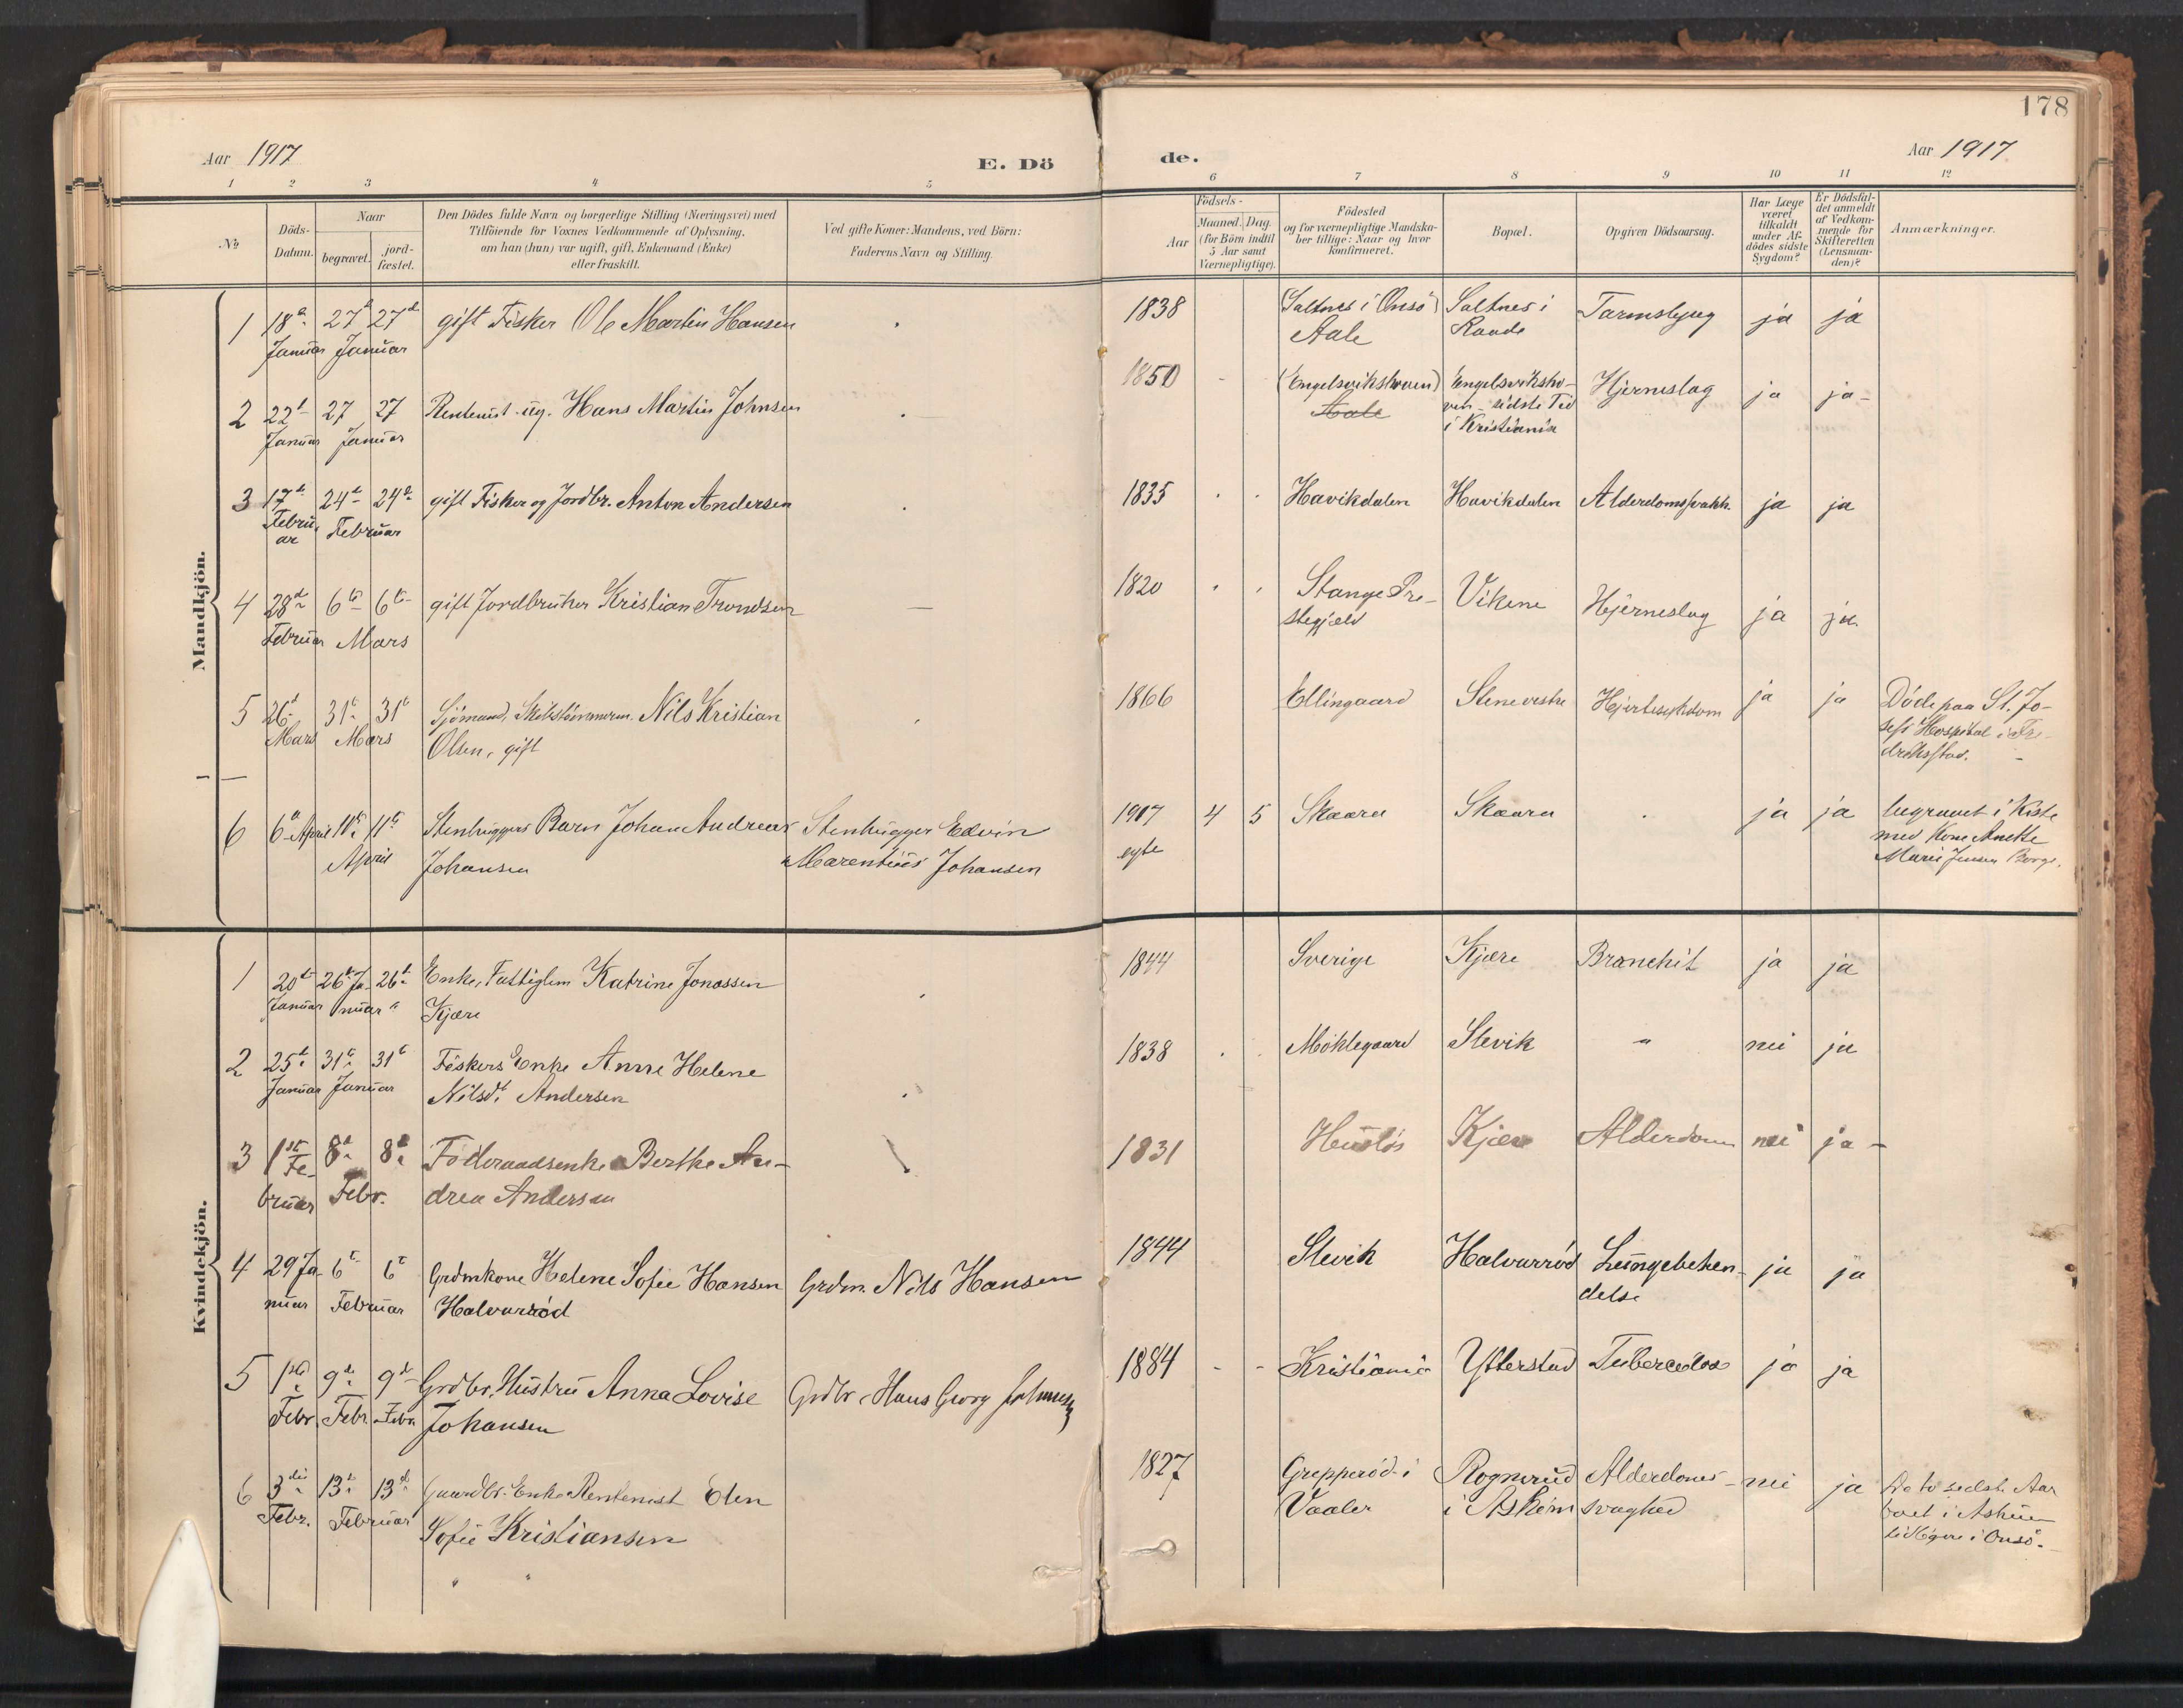 178
Aar 1917
E. Dö
de.
Aar 1917
1 2 3 4 5
6 7 8 9 10 11 12
No
Döds-
Datum.
Naar
begravet.
jord-
fæstet.
Den Dödes fulde Navn og borgerlige Stilling (Næringsvei) med
Tilföiende for Voxnes Vedkommende af Oplysning,
om han (hun) var ugift, gift, Enkemand (Enke)
eller fraskilt.
Ved gifte Koner: Mandens, ved Börn:
Faderens Navn og Stilling.
Födsels-
Aar
Maaned. Dag.
(for Börn indtil
5 Aar samt
Værnepligtige).
Födested
og for værnepligtige Mandska-
ber tillige: Naar og hvor
konfirmeret.
Bopæl.
Opgiven Dödsaarsag.
Har Læge
været
tilkaldt
under Af-
dödes sidste
Sygdom?
Er Dödsfal-
det anmeldt
af Vedkom-
mende for
Skifteretten
(Lensman-
den)?
Anmærkninger.
Mandkjön.
1 18de 27de 27de gift Fisker Ole Martin Hansen
Januar Januar
1838 (Saltnes i Onsö) Saltnes i ja ja
Aale Raade
2 22de 27 27 Rentenist ug. Hans Martin Johnsen
Januar Januar
1850 - (Engelsvikshaven) Engelsviksha- Hjerneslag ja ja -
Aale ven - sidste Tid
i Kristiania
3 17de 24de 24de gift Fisker og Jordbr. Anton Andersen
Febru-
ar Februar
1835 Havikdalen Havikdalen ja ja
4 28de 6te 6te gift Jordbruker Kristian Trondsen —
Februar Mars
1820 Stange Pre- Vikene Hjerneslag ja ja
stegjeld
5 26de 31te 31te Sjömand, Nils Kristian
Mars Mars Olsen, gift
1866 Ellingaard Stene vestre Hjertesykdom ja ja Döde paa St. Jo-
sefs Hospital i Fre-
driksstad.
6 6te April 11te 11te Stenhuggers Barn Johan Andreas Stenhugger Edvin
April Johansen Marentius Johansen
1917 4 5 Skaara Skaara ja ja begravet i Kiste
med Kone Anette
Marie Jensen Borge.
Kvindekjön.
1 20de 26de Ja- 26de Enke, Fattiglem Katrine Jonassen
Januar nuar " Kjære
1844 Sverige Kjære Bronchit ja ja
2 25de 31te 31te Fiskers Enke Anne Helene
Januar Januar Nilsdt Andersen
1838 Möklegaard Slevik " nei ja
3 1ste 8de 8de Föderaadsenke Berthe An-
Fe-
bruar Febr. drea Andersen
1831 Huslös Kjære Alderdom nei ja -
4 29 Ja- 6te 6te Grdmkone Helene Sofie Hansen Grdm. Nils Hansen
nuar Februar Halvarröd
1844 Slevik Halvarröd Lungebeten- ja ja
delse
5 1ste 9de 9de Grdbr. Hustru Anna Lovise Grdbr. Hans Georg Johansen
Febr. Febr. Febr. Johansen
1884 - - Kristiania Ytterstad Tuberculose ja ja
6 3die 13de 13de Gaardbr. Enke Rentenist Elen
Febr. Februar Sofie Kristiansen
" "
1827 Grepperöd i Rognerud Alderdoms- nei ja De to sidste Aar
Vaaler i Askim svaghed boet i Askim
tidligere i Onsö.